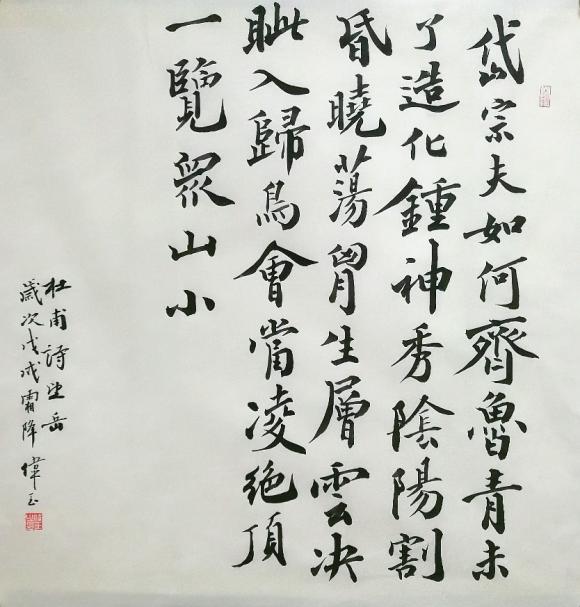 岱宗夫如何齊魯青未
了造化鍾神秀陰陽割
昏曉蕩胷生層雲决
眦入歸鳥會當凌絶頂
一覽眾山小
杜甫詩望岳
歲次戊戌霜降 偉玉